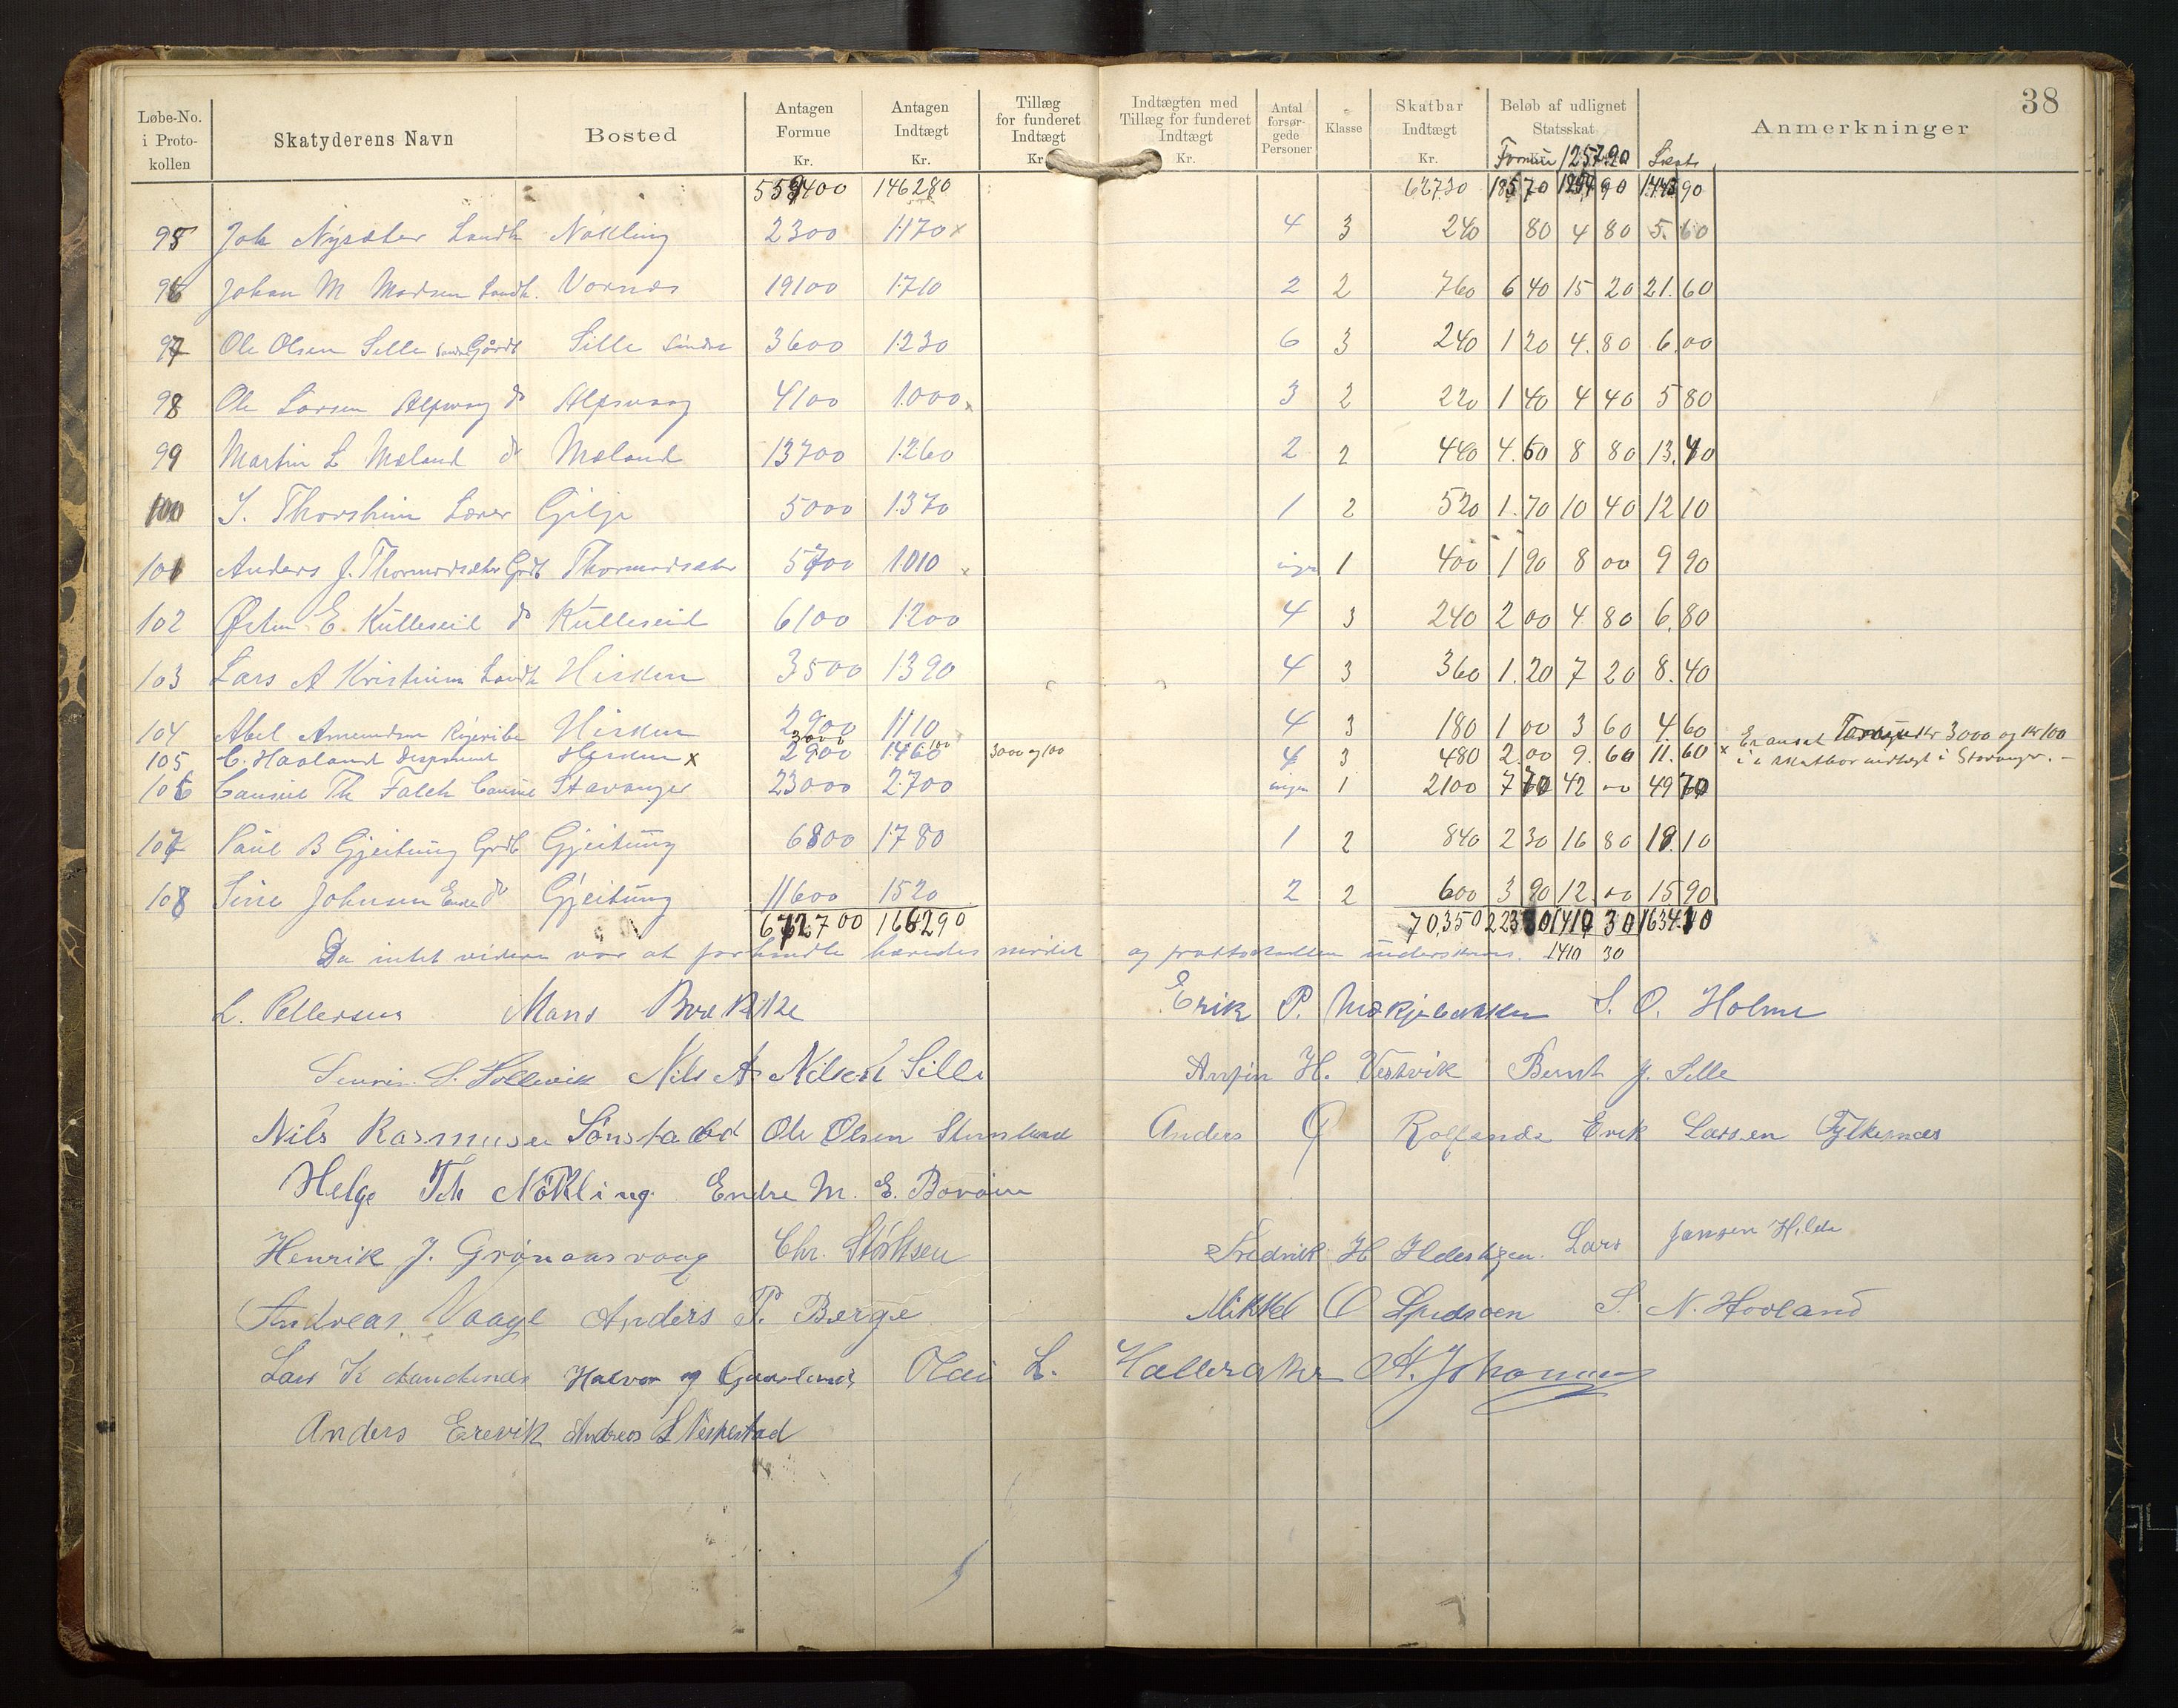 38
Løbe-No. i Proto- kollen | Skatyderens Navn | Bosted | Antagen Formue Kr. | Antagen Indtægt Kr. | Tillæg for funderet Indtægt Kr. | Indtægten med Tillæg for funderet Indtægt Kr. | Antal forsør- gede Personer | Klasse | Skatbar Indtægt Kr. | Beløb af udlignet Statsskat | Anmerkninger
Formue 1257.90 Skat
559400 146280 62730
95 Joh Nysæter Landh Nøkling 2300 1170 x 4 3 240 80 4 80 5.60
96 Johan M Madsen Landh. Vornes 19100 1710 2 2 760 6 40 15 20 21.60
97 Ole Olsen Sille Gårdb Sille Søndre 3600 1230 6 3 240 1 20 4.80 6.00
98 Ole Larsen Alfsvaag do Alfsvaag 4100 1000 x 3 2 220 1 40 4 40 5 80
99 Martin L Mæland do Mæland 13700 1260 2 2 440 4.60 8 80 13.40
100 Thorsheim Lærer Gilje 5000 1370 1 2 520 1.70 10 40 12 10
101 Anders J. Thormodsæter Grdb Thormodsæter 5700 1010 x ingen 1 400 1 90 8 00 9 90
102 Østen E. Kulleseid do Kulleseid 6100 1200 4 3 240 2 00 4 80 6.80
103 Lars A Kristensen Landh Hisken 3500 1390 4 3 360 1.20 7 20 8.40
104 Abel Amundsen Hisken 2900 1110 4 3 180 1 00 3 60 4.60
105 C. Haaland Disponent Hisken x 3000 2900 1460 100 3000 og 100 4 3 480 2.00 9.60 11.60 x Er ansat Formue Kr 3000 og Kr 100
i skatbar indtægt i Stavanger. –
106 Consul Th Falck Consul Stavanger 23000 2700 ingen 1 2100 7 70 42 00 49 70
107 Paul B Gjeitung Grdb Gjeitung 6800 1780 1 2 840 2 30 16 80 19.10
108 Sine Johnsen Enke do Gjeitung 11600 1520 2 2 600 3 90 12.00 15 90
672700 166290 70,350 223 80 1410 30 1634.10
Da intet videre var at forhandle hævedes mødet og prottokollen underskrives. 1410 30
L. Pettersen Mons Brække Erik P. Mækjebakken S. O. Holme
S. Sollevik Nils A Nilsen Sille H. Vestvik Bernt J. Sille
Nils Rasmusen Sønstabø Ole Olsen Stensland Anders Ø Rolfsnes Erik Larsen Fylkesnes
Helge Th Nökling. Endre M. E. Børøen
Henrik J. Grønaasvaag Chr. Störksen Fredrik H Lars Jansen Hilde
Andreas Vaage Anders P. Berge Mikkel O S. N. Hovland
Lars K Halvor Olai L. Halleraker A. Johannes
Anders Erevik Andreas L Vespestad